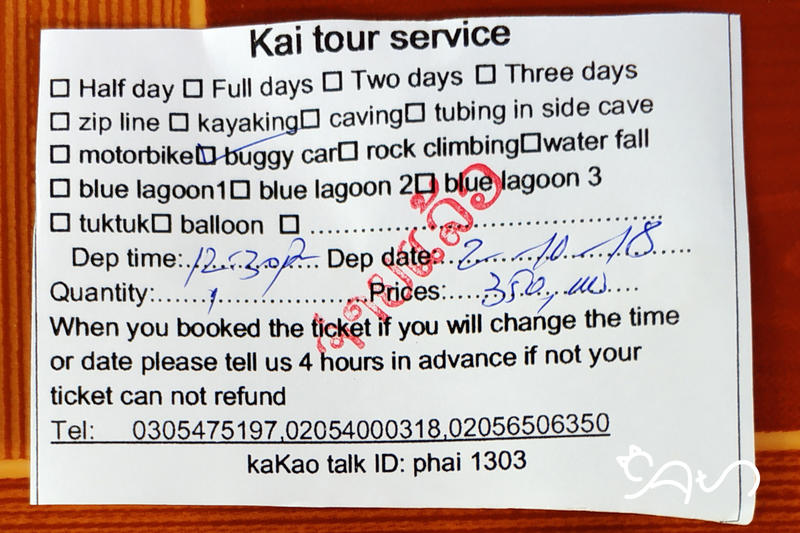 Kai tour service
☐ Half day ☐ Full days ☐ Two days ☐ Three days
☐ zip line ☐ kayaking☐ caving☐ tubing in side cave
☐ motorbike☑ buggy car☐ rock climbing☐water fall
☐ blue lagoon1☐ blue lagoon 2☐ blue lagoon 3
☐ tuktuk☐ balloon ☐ ................................................
Dep time:..12:30..... Dep date:..2....10...18......
Quantity:......1........................Prices:.....350,000....
ຈ່າຍແລ້ວ
When you booked the ticket if you will change the time
or date please tell us 4 hours in advance if not your
ticket can not refund
Tel: 0305475197,02054000318,02056506350
kaKao talk ID: phai 1303